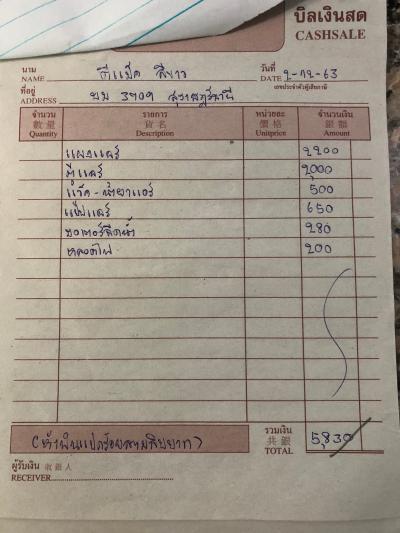 บิลเงินสด
CASHSALE
นาม
NAME ดีแม็ค สีขาว
วันที่
DATE 2-12-63
ที่อยู่
ADDRESS บม 3909 สุราษฎร์ธานี
เลขประจำตัวผู้เสียภาษี
จำนวน รายการ หน่วยละ จำนวนเงิน
數量 貨名 價格 銀額
Quantity Description Unitprice Amount
แผงแอร์ 2200
ตู้แอร์ 2,000
แว็ค-น้ำยาแอร์ 500
แป๊ปแอร์ 650
มอเตอร์ฉีดน้ำ 280
หลอดไฟ 200
(ห้าพันแปดร้อยสามสิบบาท)
รวมเงิน
共銀
TOTAL 5,830
ผู้รับเงิน 收銀人
RECEIVER